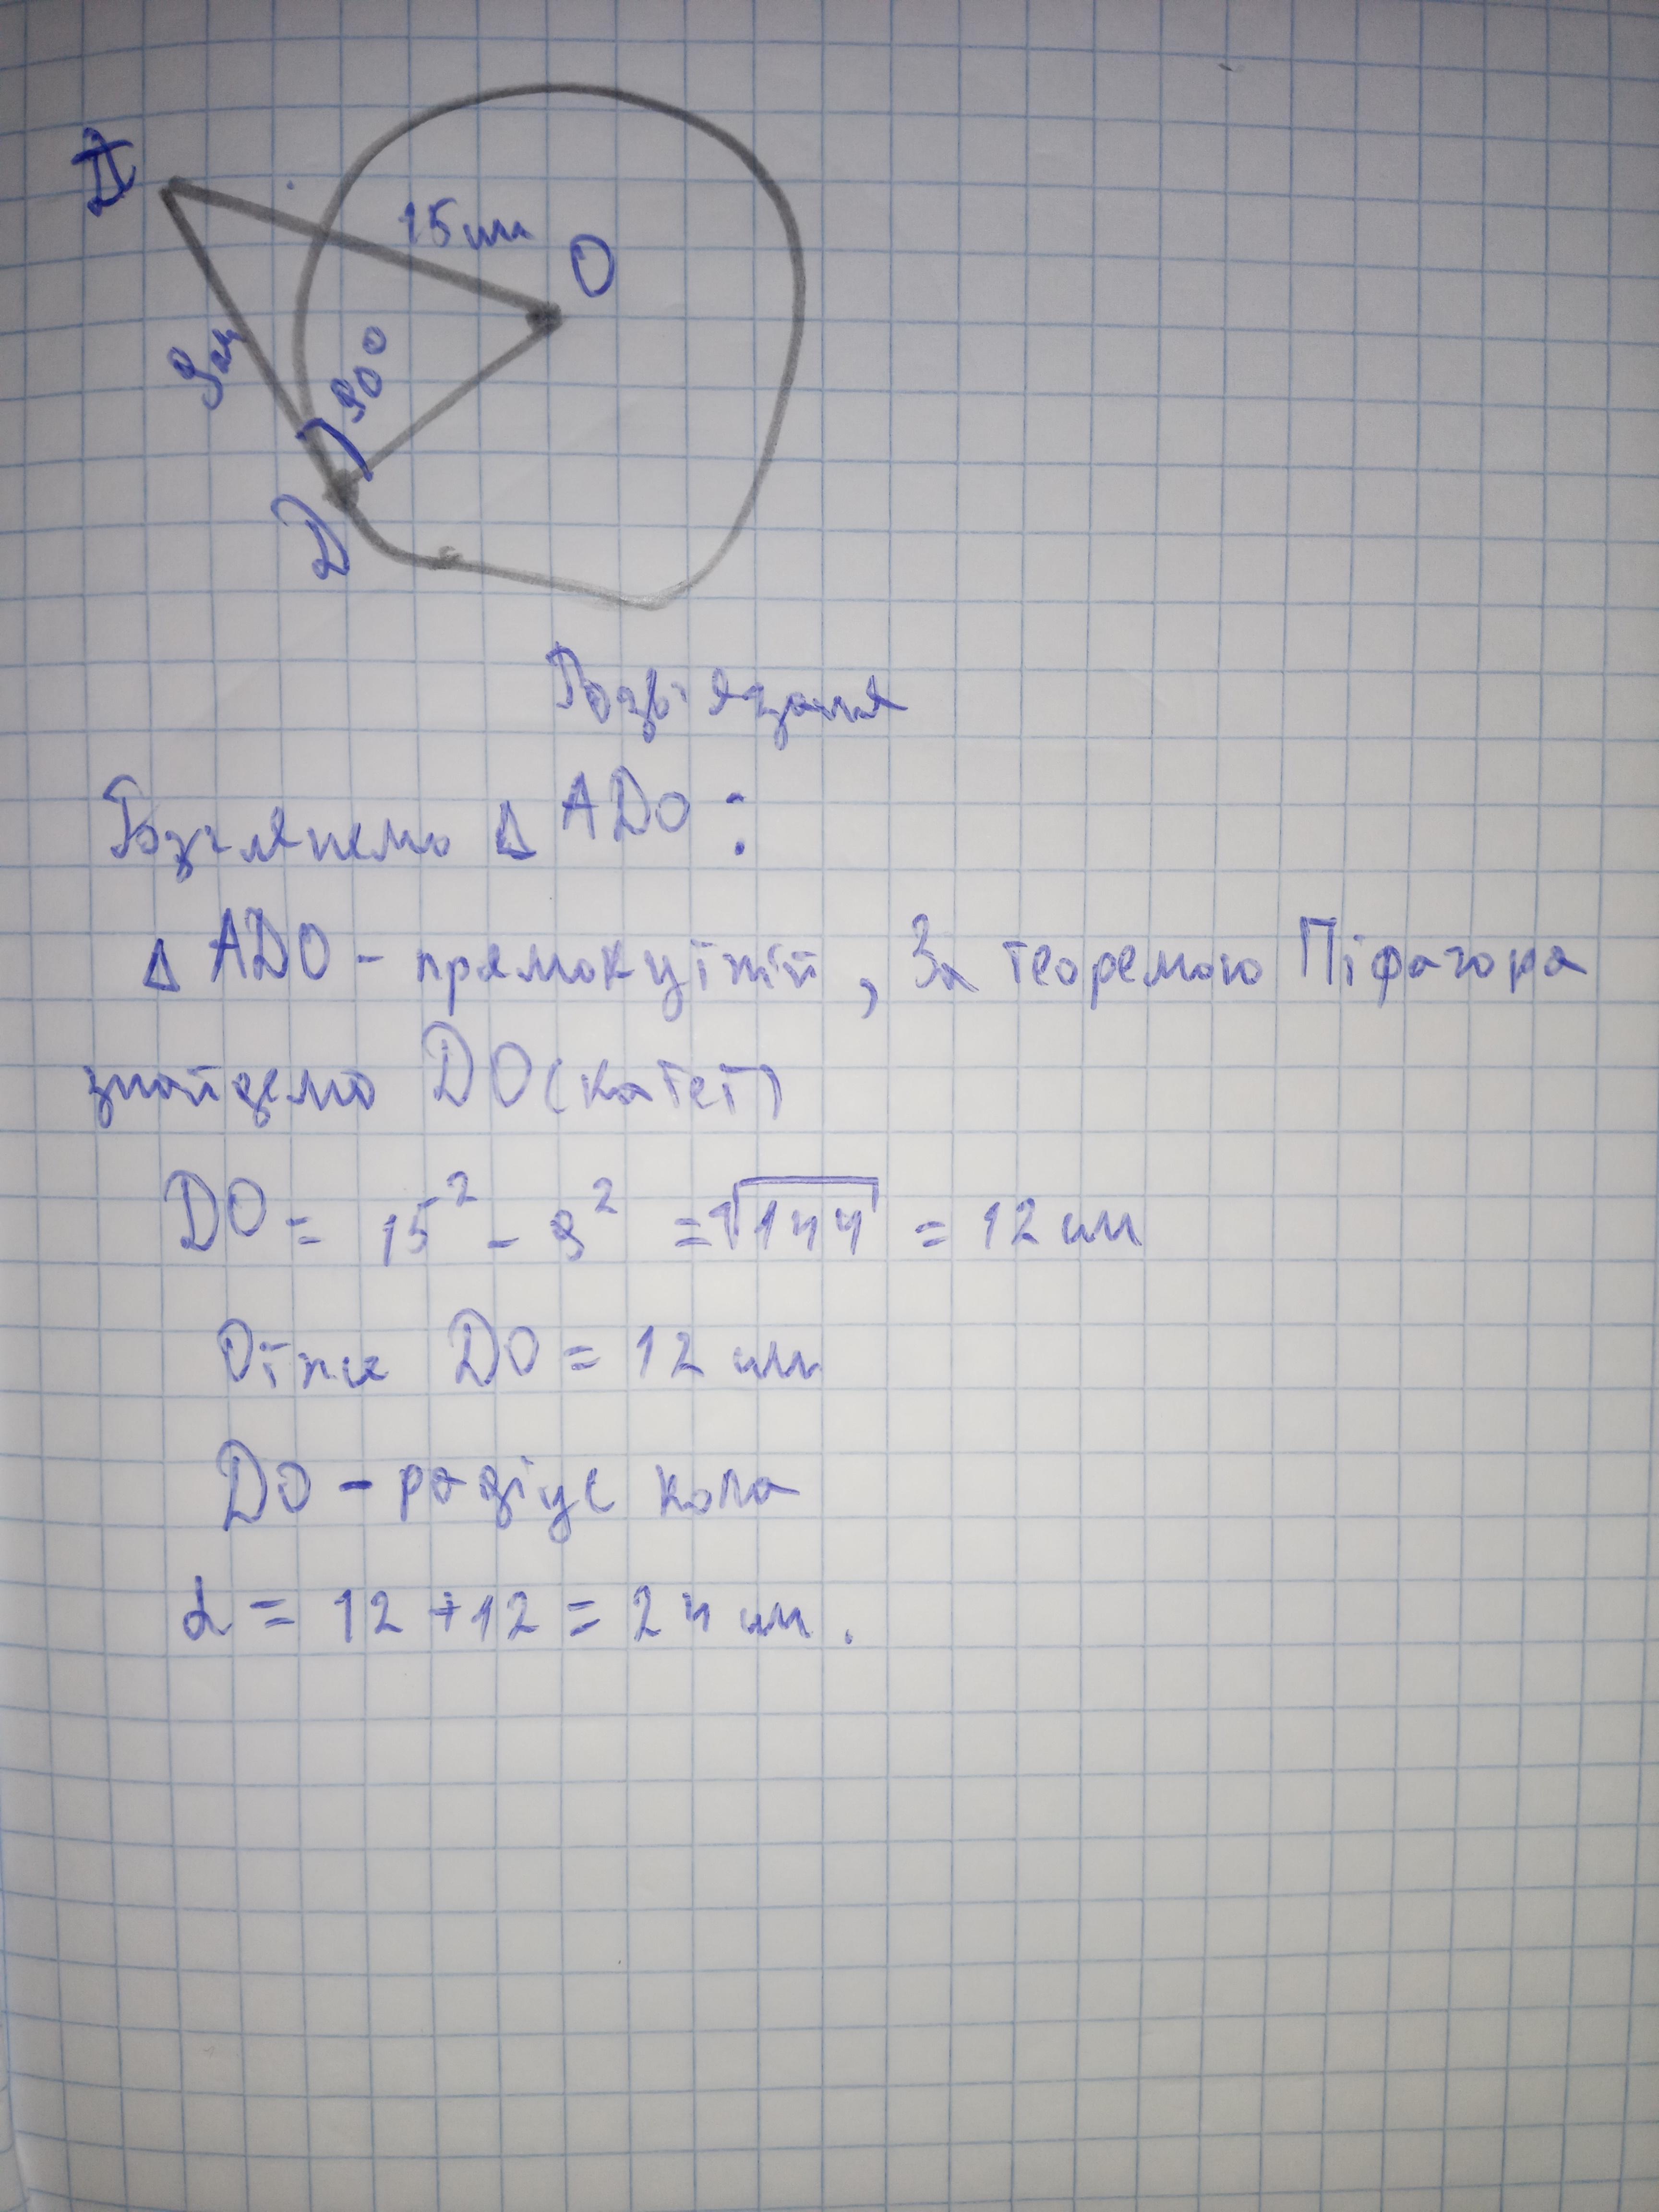 А
15 см
О
9 см
90°
D
Розв'язання
Розглянемо Δ ADO :
Δ ADO - прямокутний, За теоремою Піфагора
знайдемо DO (катет)
DO = 15² - 9² = √144 = 12 см
Отже DO = 12 см
DO - радіус кола
d = 12 + 12 = 24 см.